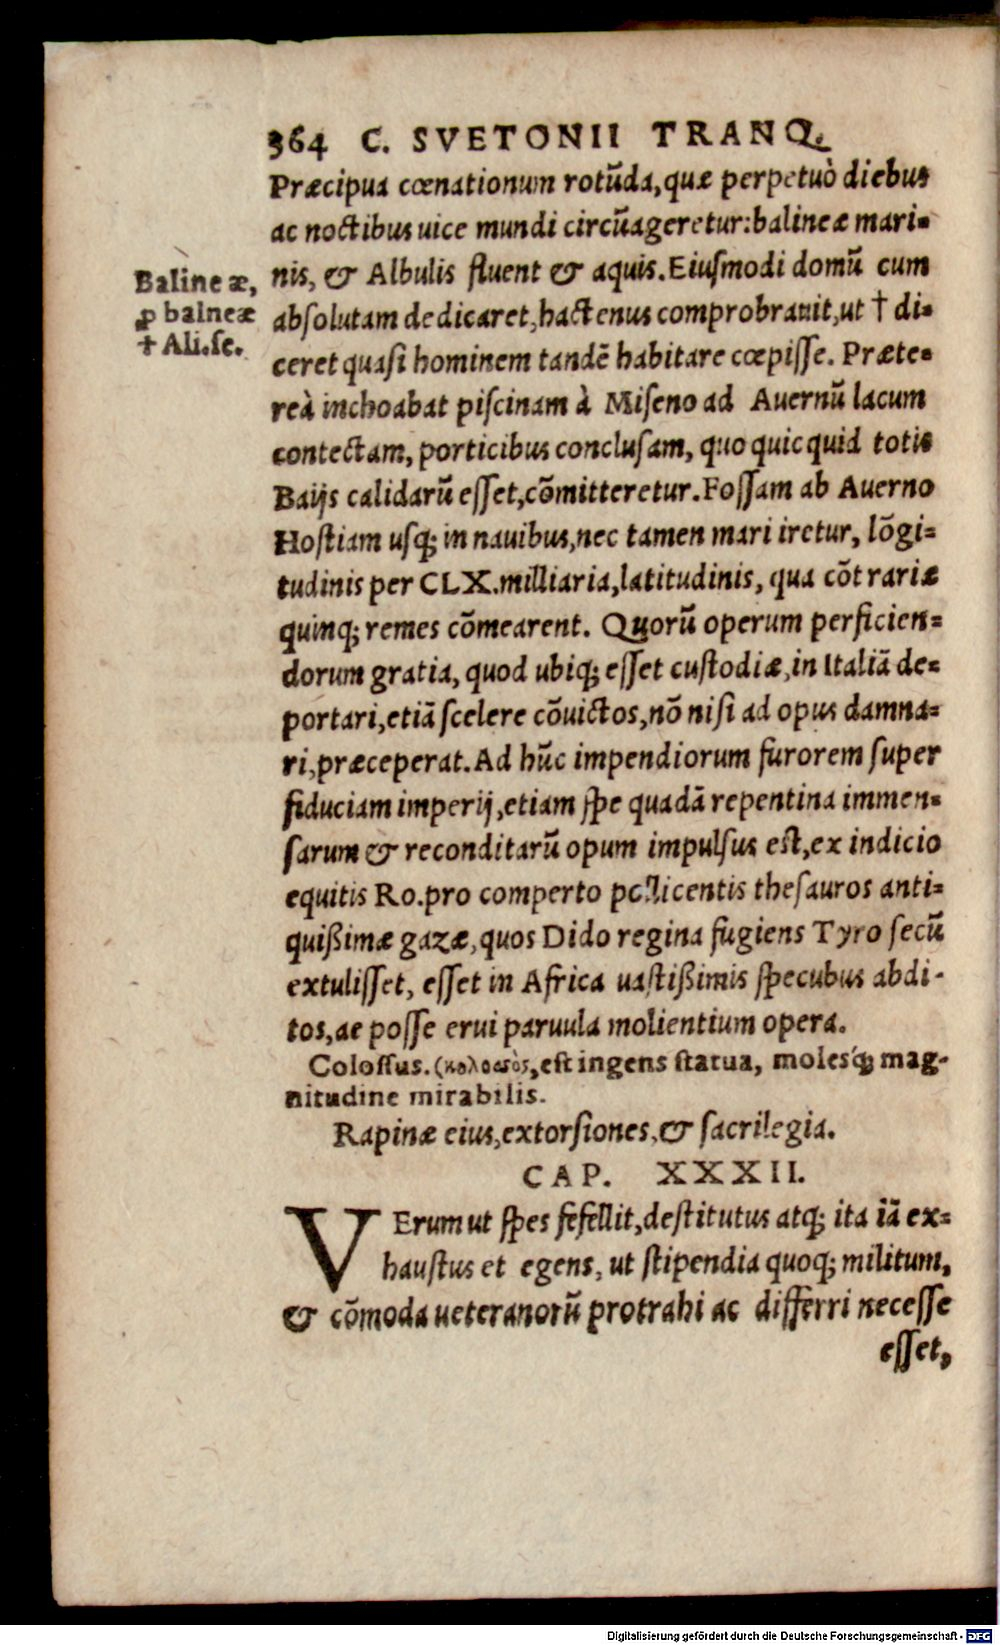 364 C. SVETONII TRANQ.
Præcipua cœnationum rotũda, quæ perpetuò diebus
ac noctibus uice mundi circũageretur: balineæ mari=
nis, & Albulis fluent & aquis. Eiusmodi domũ cum
Balineæ,
ꝓ balneæ
† Ali. se.
absolutam dedicaret, hactenus comprobrauit, ut † di=
ceret quasi hominem tandẽ habitare cœpisse. Præte=
reà inchoabat piscinam à Miseno ad Auernũ lacum
contectam, porticibus conclusam, quo quicquid totis
Baijs calidarũ esset, cõmitteretur. Fossam ab Auerno
Hostiam usq; in nauibus, nec tamen mari iretur, lõgi=
tudinis per CLX. milliaria, latitudinis, qua cõtrariæ
quinq; remes cõmearent. Quorũ operum perficien=
dorum gratia, quod ubiq; esset custodiæ, in Italiã de=
portari, etiã scelere cõuictos, nõ nisi ad opus damna=
ri, præceperat. Ad hũc impendiorum furorem super
fiduciam imperij, etiam spe quadã repentina immen=
sarum & reconditarũ opum impulsus est, ex indicio
equitis Ro. pro comperto pollicentis thesauros anti=
quißimæ gazæ, quos Dido regina fugiens Tyro secũ
extulisset, esset in Africa uastißimis specubus abdi-
tos, ac posse erui paruula molientium opera.
Colossus. (κολοσσὸς, est ingens statua, molesq́; mag-
nitudine mirabilis.
Rapinæ eius, extorsiones, & sacrilegia.
CAP. XXXII.
VErum ut spes fefellit, destitutus atq; ita iã ex=
haustus et egens, ut stipendia quoq; militum,
& cõmoda ueteranorũ protrahi ac differri necesse
esset,
Digitalisierung gefördert durch die Deutsche Forschungsgemeinschaft - DFG